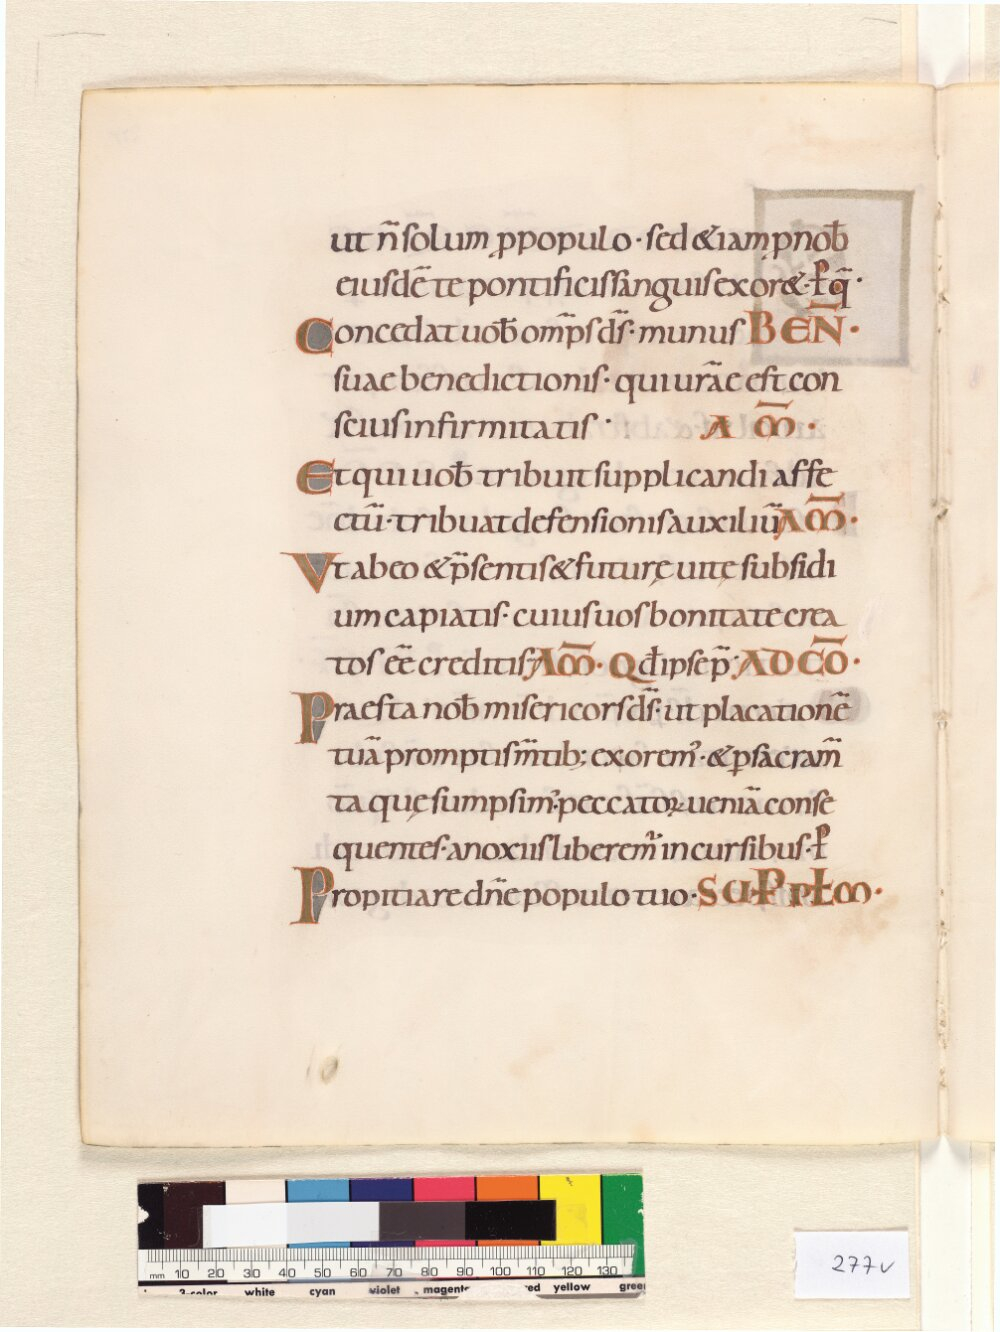 ut n̄ solum ꝓ populo · sed &iam ꝓ nob̄
eiusdē te pontificis sanguis exor& · ꝑ q̄ ·
Concedat uob̄ om̅ps d̅s · munus BEN̄ ·
suae benedictionis · qui ur̅ae est con
scius infirmitatis · A M̄ ·
Et qui uob̄ tribuit supplicandi affe
ctū · tribuat defensionis auxiliū AM̄ ·
Vt ab eo & p̄sentis & futurę uitę subsidi
um capiatis · cuius uos bonitate crea
tos ee̅ creditis AM̄ · Qđ ipse p̄ · AD CŌ ·
Praesta nob̄ misericors d̅s · ut placationē
tuā promptis m̅tib; exorem᾽ · & ꝑ sacram̅
ta quę sumpsim᾽ · peccatoꝝ ueniā conse
quentes · a noxiis liberem̅ incursibus · ꝑ
Propitiare dn̅e populo tuo · SUP PPLM ·
277v
mm 10 20 30 40 50 60 70 80 90 100 110 120 130
3-color white cyan violet magenta red yellow green